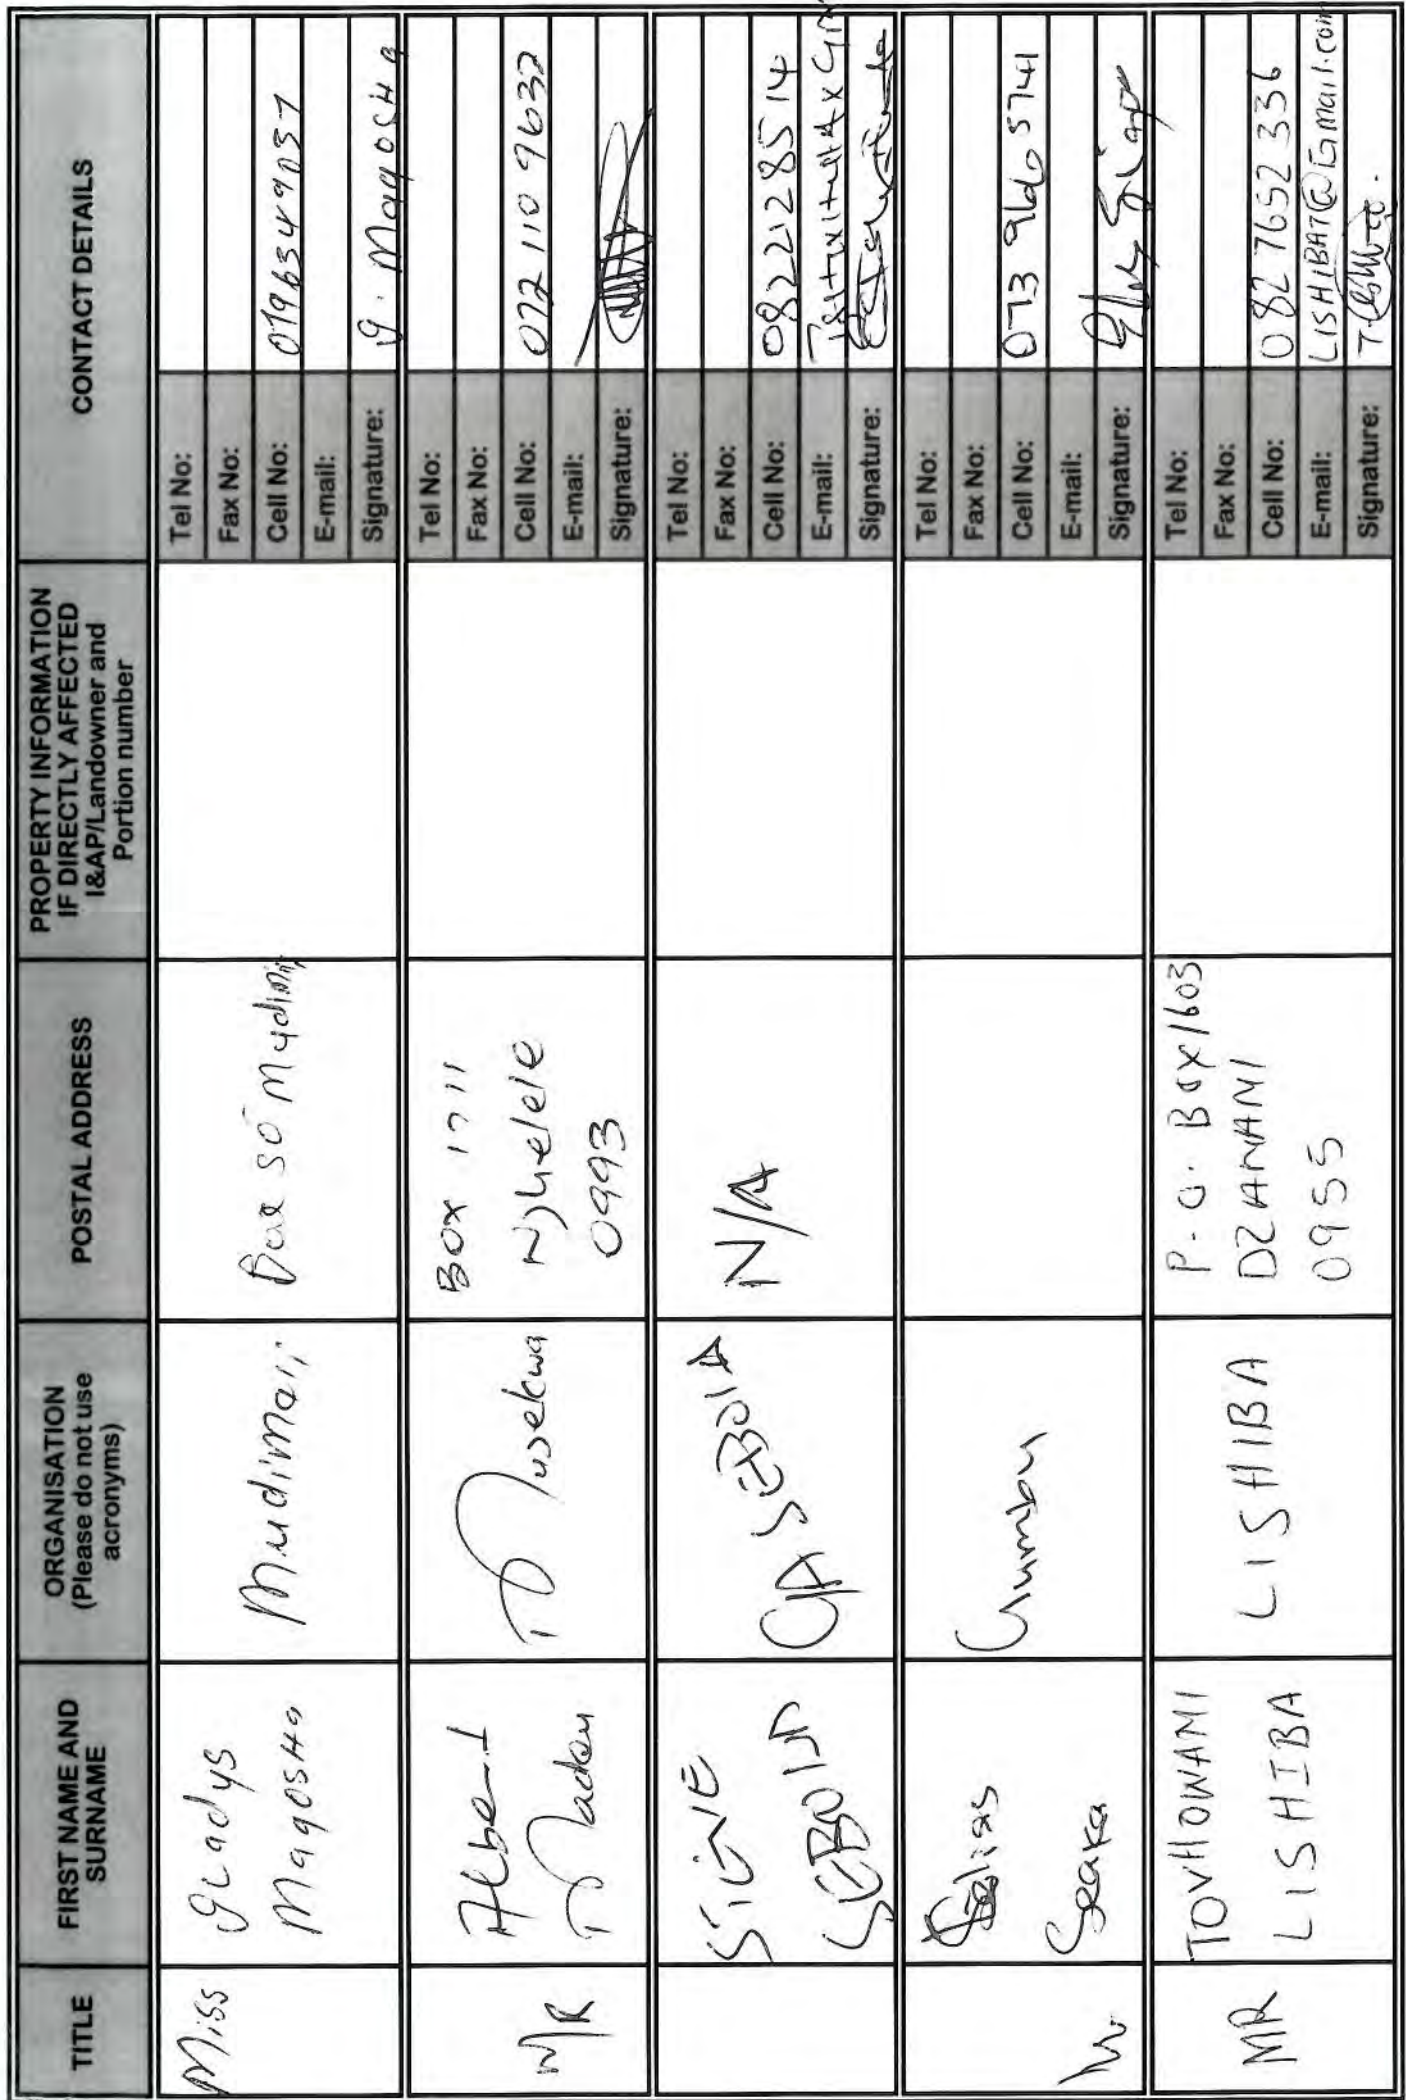 TITLE
FIRST NAME AND
SURNAME
ORGANISATION
(Please do not use
acronyms)
POSTAL ADDRESS
PROPERTY INFORMATION
IF DIRECTLY AFFECTED
I&AP/Landowner and
Portion number
CONTACT DETAILS
Miss
Gladys
MagosHa
Mudimani
Box 50
Tel No:
Fax No:
Cell No:
E-mail:
Signature: g. MagosHa
M/R
Albert
Musekwa
BOX 1711
Nzhelele
0993
Tel No:
Fax No:
Cell No: 072 110 9632
E-mail:
Signature:
SEBOLA
N/A
Tel No:
Fax No:
Cell No: 0822128514
E-mail:
Signature:
Elias
Gumbu
Tel No:
Fax No:
Cell No: 073 966 5741
E-mail:
Signature:
MR
TOVHOWANI
LISHIBA
LISHIBA
P.O. Box 1603
DZANANI
0955
Tel No:
Fax No:
Cell No: 082 7652 336
E-mail: LISHIBAT@Gmail.com
Signature: